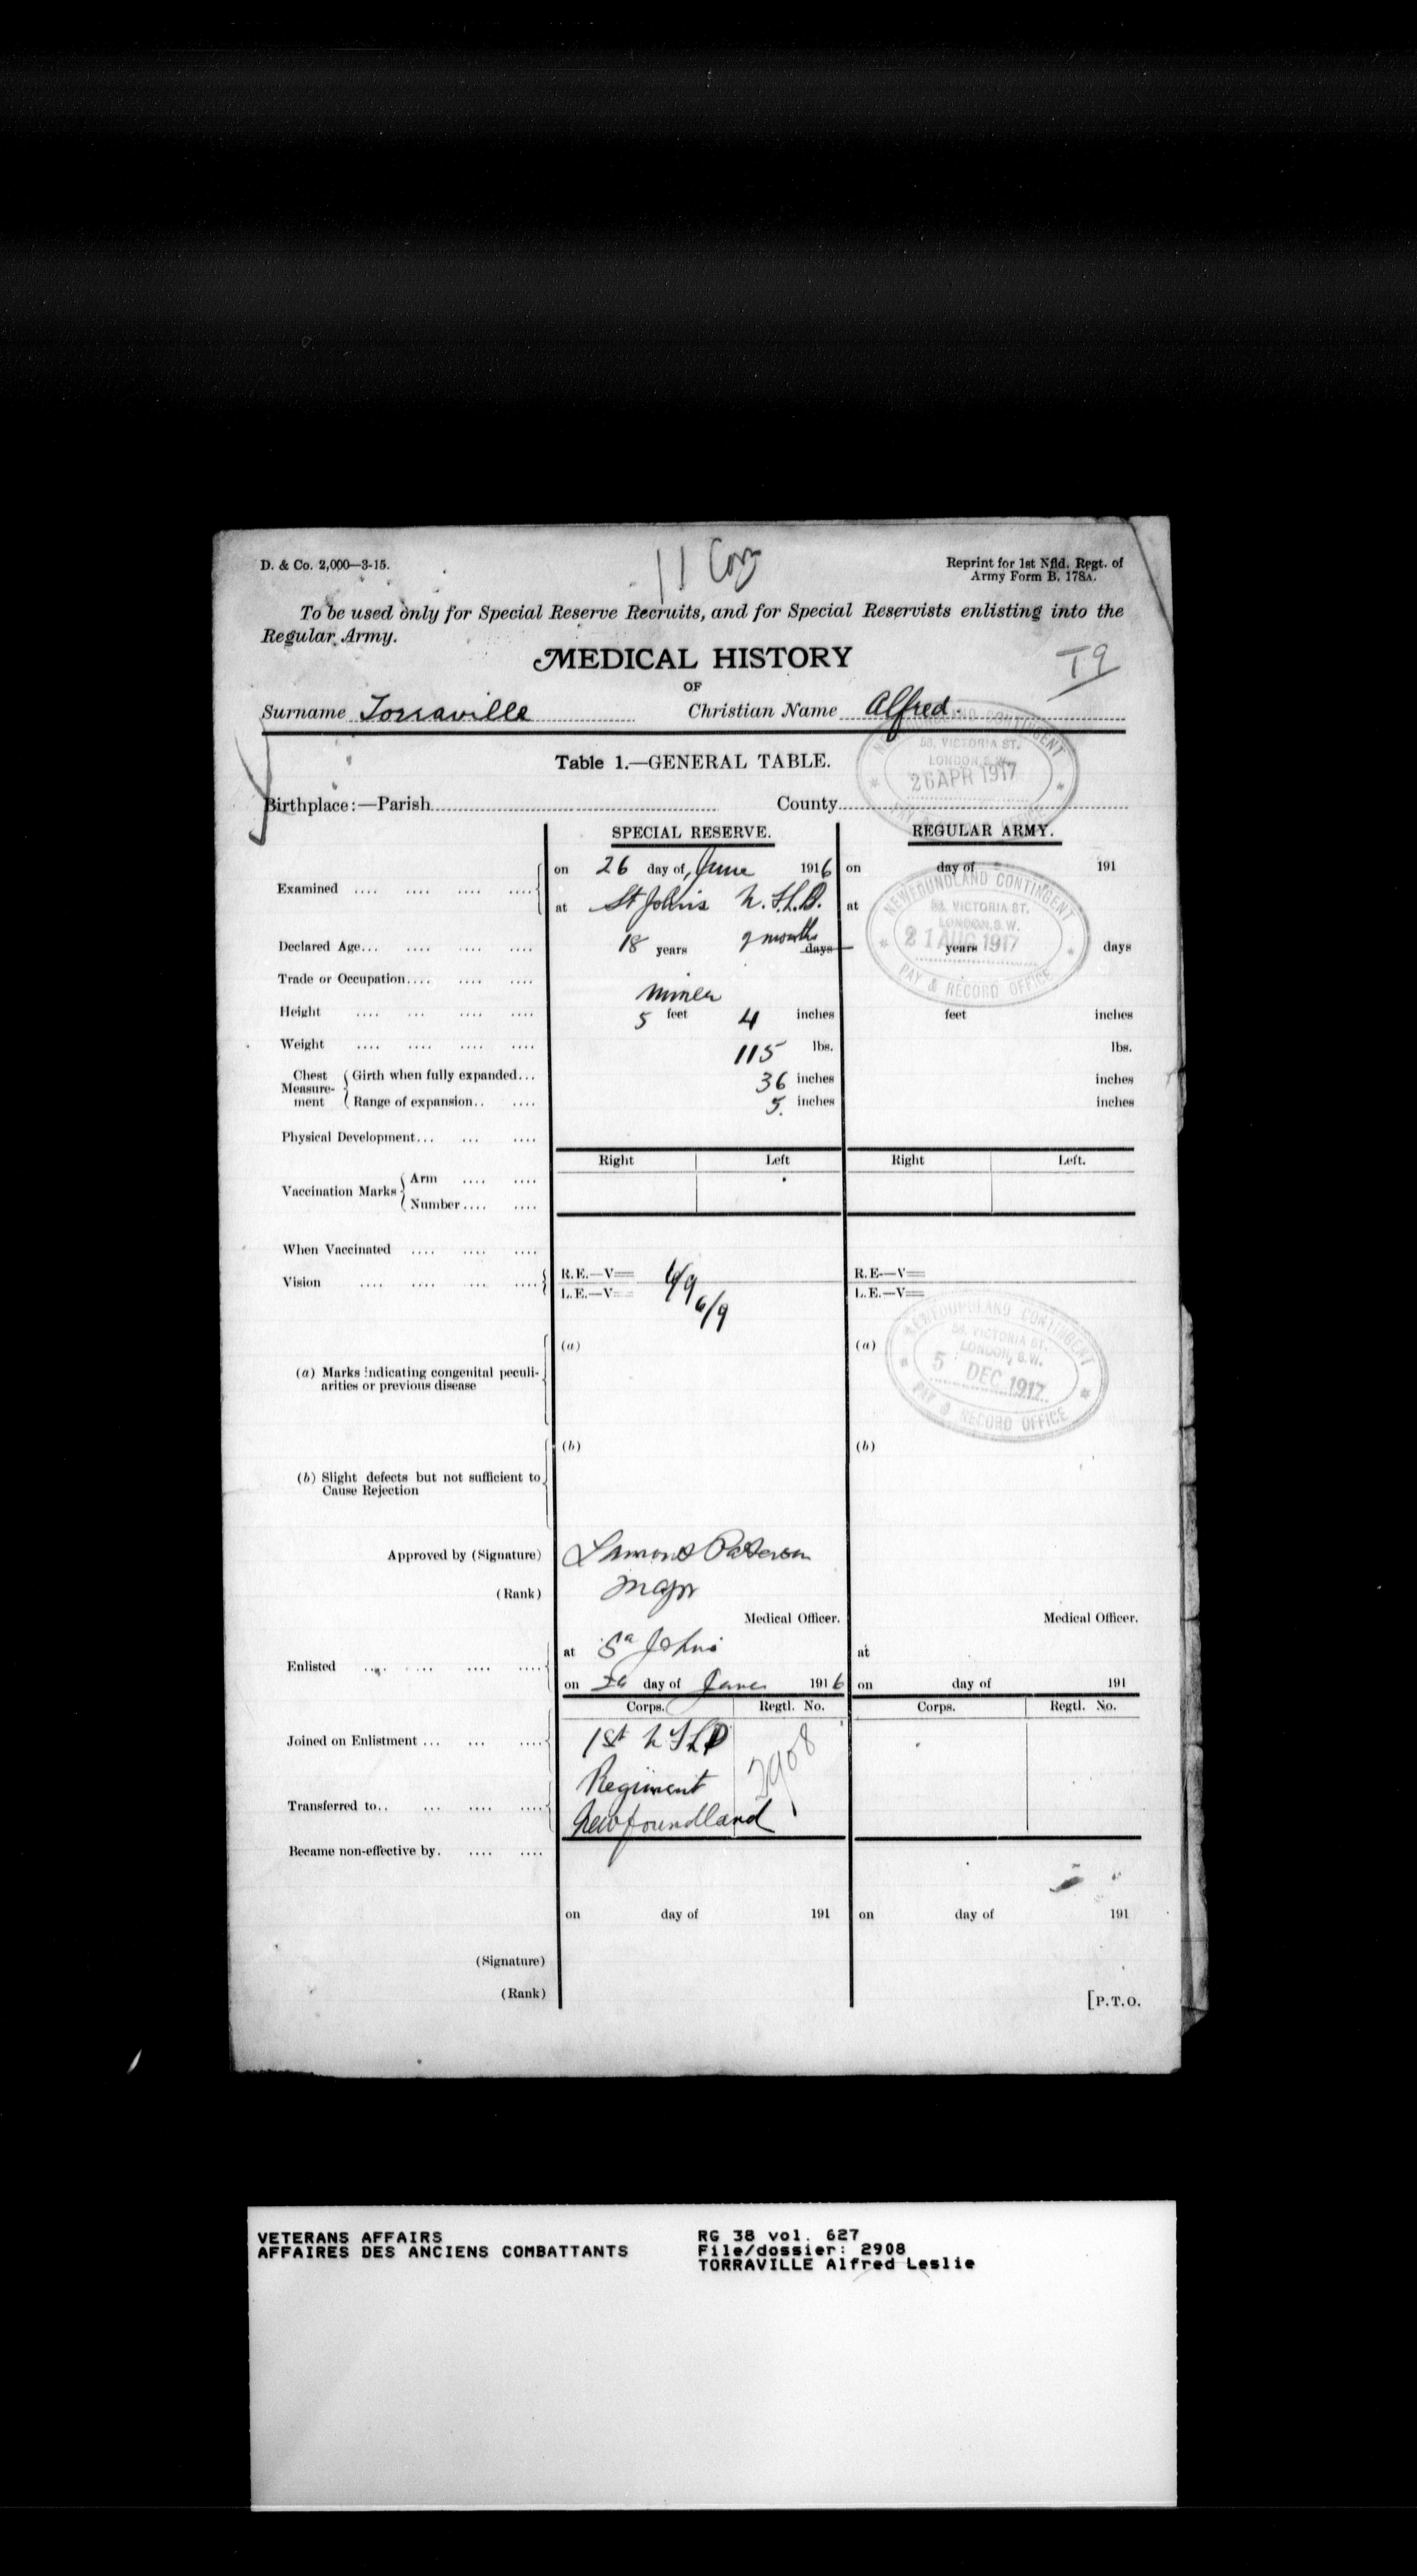 D. & Co. 2,000—3-15.
11 Coy
Reprint for 1st Nfld. Regt. of
Army Form B. 178A.
To be used only for Special Reserve Recruits, and for Special Reservists enlisting into the
Regular Army.
MEDICAL HISTORY
T9
OF
Surname Torraville Christian Name Alfred.
NEWFOUNDLAND CONTINGENT
58, VICTORIA ST.
LONDON, S.W.
26 APR 1917
PAY & RECORD OFFICE
Table 1.—GENERAL TABLE.
Birthplace:—Parish County
SPECIAL RESERVE. REGULAR ARMY.
Examined .... on 26 day of June 1916 on day of 191
at St John's N.F.L.D. at
NEWFOUNDLAND CONTINGENT
58, VICTORIA ST.
LONDON, S.W.
21 AUG 1917
PAY & RECORD OFFICE
Declared Age... 18 years 9 months days years days
Trade or Occupation.... Miner
Height .... 5 feet 4 inches feet inches
Weight .... 115 lbs. lbs.
Chest Measurement Girth when fully expanded... 36 inches inches
Range of expansion.. 5. inches inches
Physical Development...
Right Left Right Left.
Vaccination Marks Arm ....
Number....
When Vaccinated ....
Vision .... R.E.—V= 6/9 R.E.—V=
L.E.—V= 6/9 L.E.—V=
NEWFOUNDLAND CONTINGENT
58, VICTORIA ST.
LONDON, S.W.
5 DEC 1917
PAY & RECORD OFFICE
(a) (a)
(a) Marks indicating congenital peculi-
arities or previous disease
(b) (b)
(b) Slight defects but not sufficient to
Cause Rejection
Approved by (Signature) Lamont Paterson
(Rank) Major
Medical Officer. Medical Officer.
Enlisted .... at St Johns at
on 26 day of June 1916 on day of 191
Corps. Regtl. No. Corps. Regtl. No.
Joined on Enlistment ... 1st NFLD 2908
Regiment
Transferred to.. Newfoundland
Became non-effective by.
on day of 191 on day of 191
(Signature)
(Rank)
[P.T.O.
VETERANS AFFAIRS
AFFAIRES DES ANCIENS COMBATTANTS
RG 38 vol. 627
File/dossier: 2908
TORRAVILLE Alfred Leslie